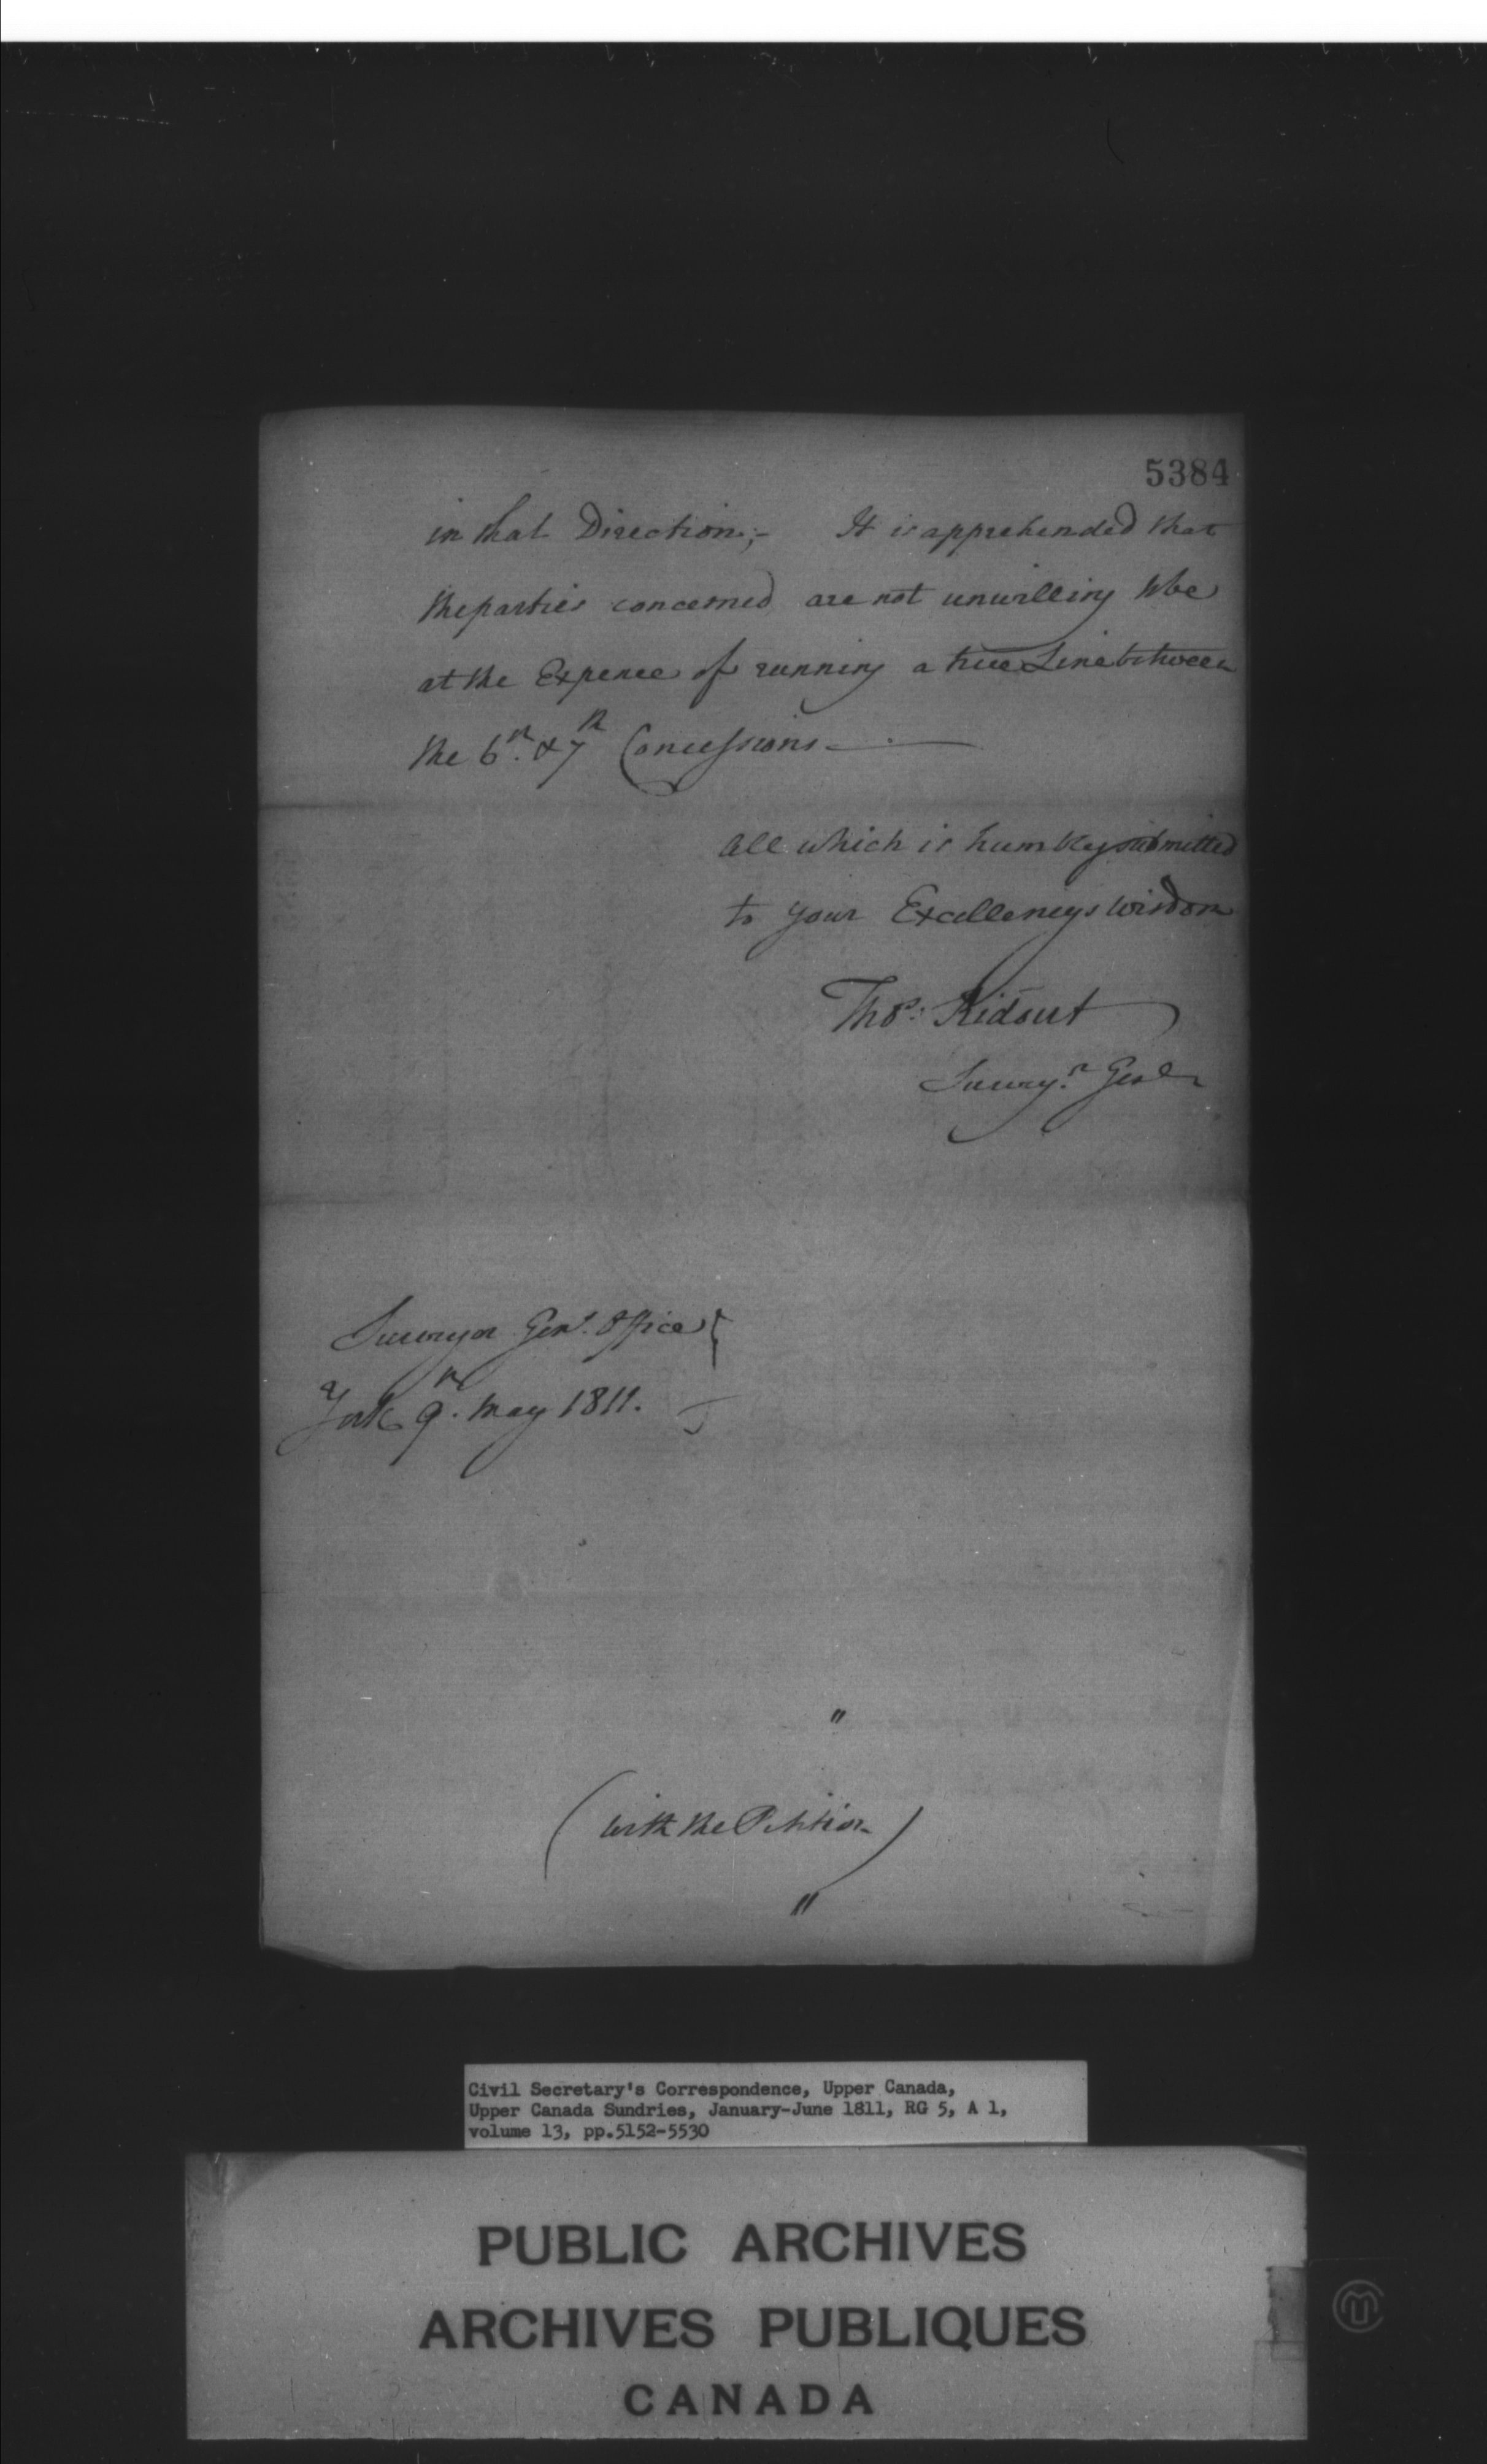 5384
in that Direction;- It is apprehended that
the parties concerned are not unwilling to be
at the Expence of running a true Line between
the 6th. & 7th Concessions —.—
All which is humbly submitted
to your Excellencys wisdom
Thos: Ridout
Surveyr. Genl
Surveyor Genl. Office
York 9th. May 1811.
"
(with the Petition)
"
Civil Secretary's Correspondence, Upper Canada,
Upper Canada Sundries, January-June 1811, RG 5, A 1,
volume 13, pp.5152-5530
PUBLIC ARCHIVES
ARCHIVES PUBLIQUES
CANADA